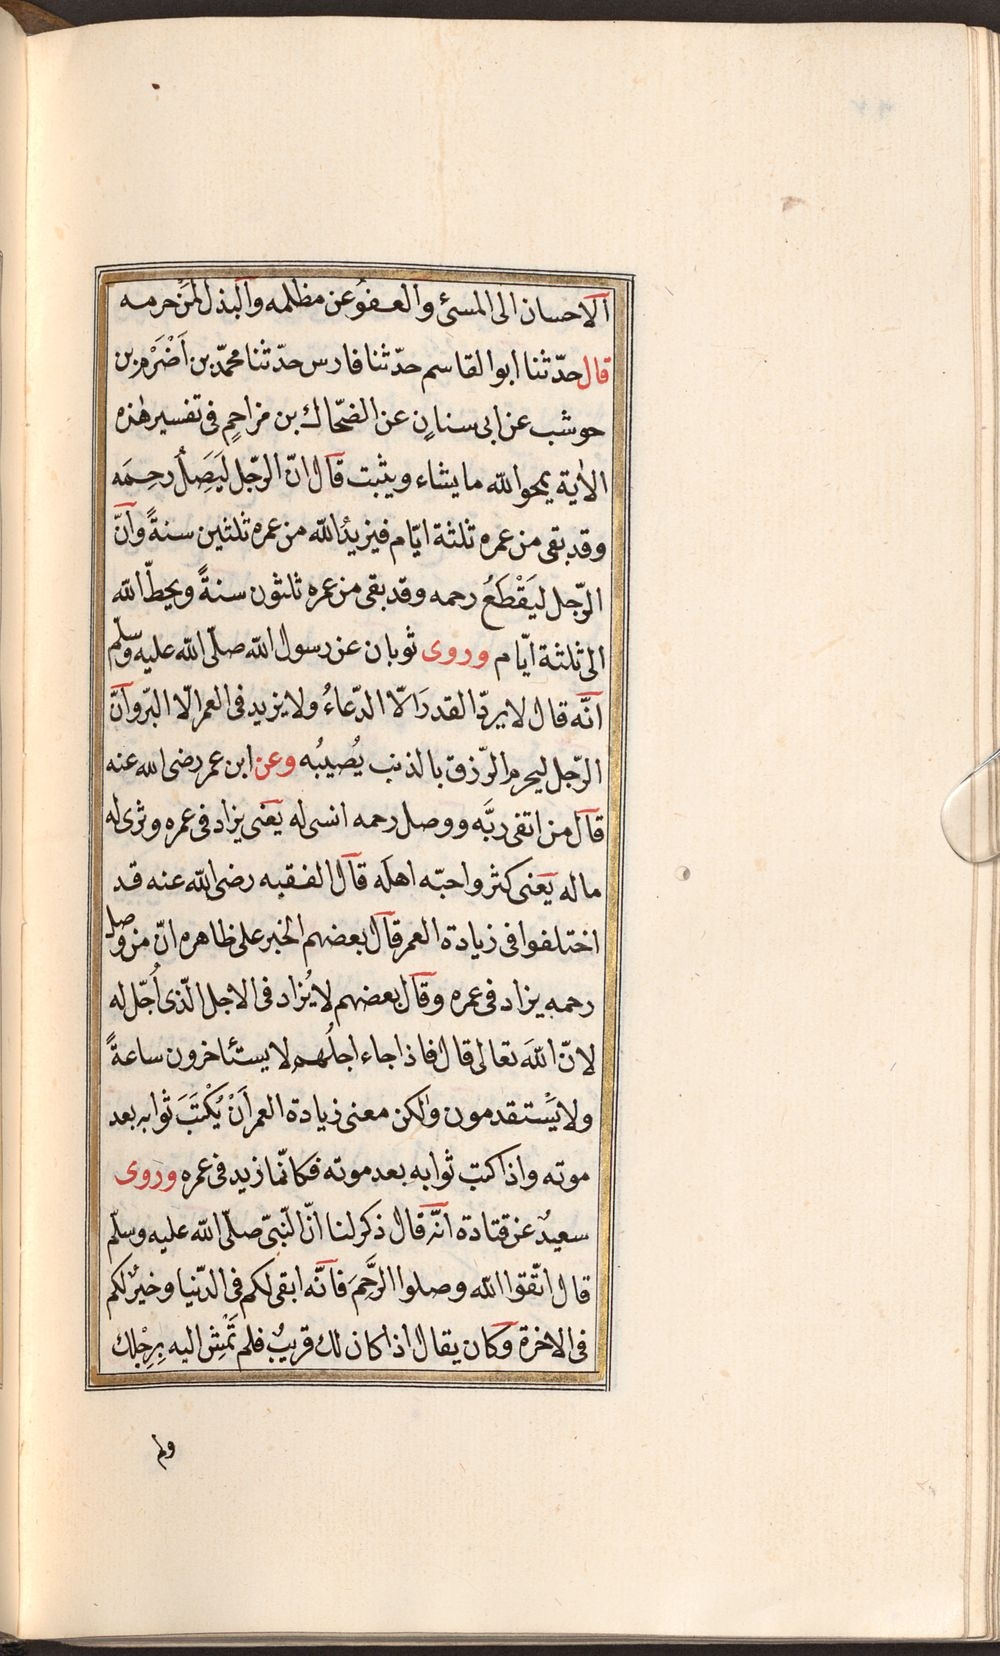 الاحسان الى المسئ والعفو عن مظلمه والبذل لمن حرمه
قال حدّثنا ابو القاسم حدّثنا فارس حدّثنا محمّد بن اَضْرَم بن
حوشب عن ابى سنانٍ عن الضحّاك بن مزاحمٍ فى تفسير هٰذه
الاٰية يمحوا الله ما يشاء ويثبت قال انّ الرّجل ليَصِلُ رحِمَه
وقد بقى من عمره ثلثة ايّام فيزيدُ الله من عمره ثلثين سنةً وانّ
الرّجل ليَقْطَعُ رحمه وقد بقى من عمره ثلثون سنةً ويحطّ الله
الى ثلثة ايّام وروى ثوبان عن رسول الله صلّى الله عليه وسلّم
انّه قال لا يردّ القدرَ الّا الدّعاءُ ولا يزيد فى العمر الّا البرّ وانّ
الرّجل ليحرم الرّزق بالذنب يُصيبُه وعن ابن عمر رضى الله عنه
قال من اتقى ربَّه ووصل رحمه انسى له يعنى يزاد فى عمره وثرى له
ماله يعنى كثر واحبّه اهلَه قال الفقيه رضى الله عنه قد
اختلفوا فى زيادة العمر قال بعضهم الخبر على ظاهره انّ من وصل
رحمه يزاد فى عمره وقال بعضهم لا يُزاد فى الاجل الّذى اُجّل له
لانّ اللهَ تعالى قال فاذا جاء اجلُهم لا يستأخرون ساعةً
ولا يَسْتقدمون ولٰكن معنى زيادة العمر اَنْ يُكْتَبَ ثوابه بعد
موته واذا كتب ثوابه بعد موته فكانّما زيد فى عمره وروى
سعيدٌ عن قتادة انّه قال ذكر لنا انّ النّبىّ صلّى الله عليه وسلّم
قال اتّقوا الله وصلوا الرَّحِمَ فانّه ابقى لكم فى الدّنيا وخيرٌ لكم
فى الاخرة وكان يقال اذا كان لك قريبٌ فلم تَمْشِ اليه بِرِجْلِك
ولم